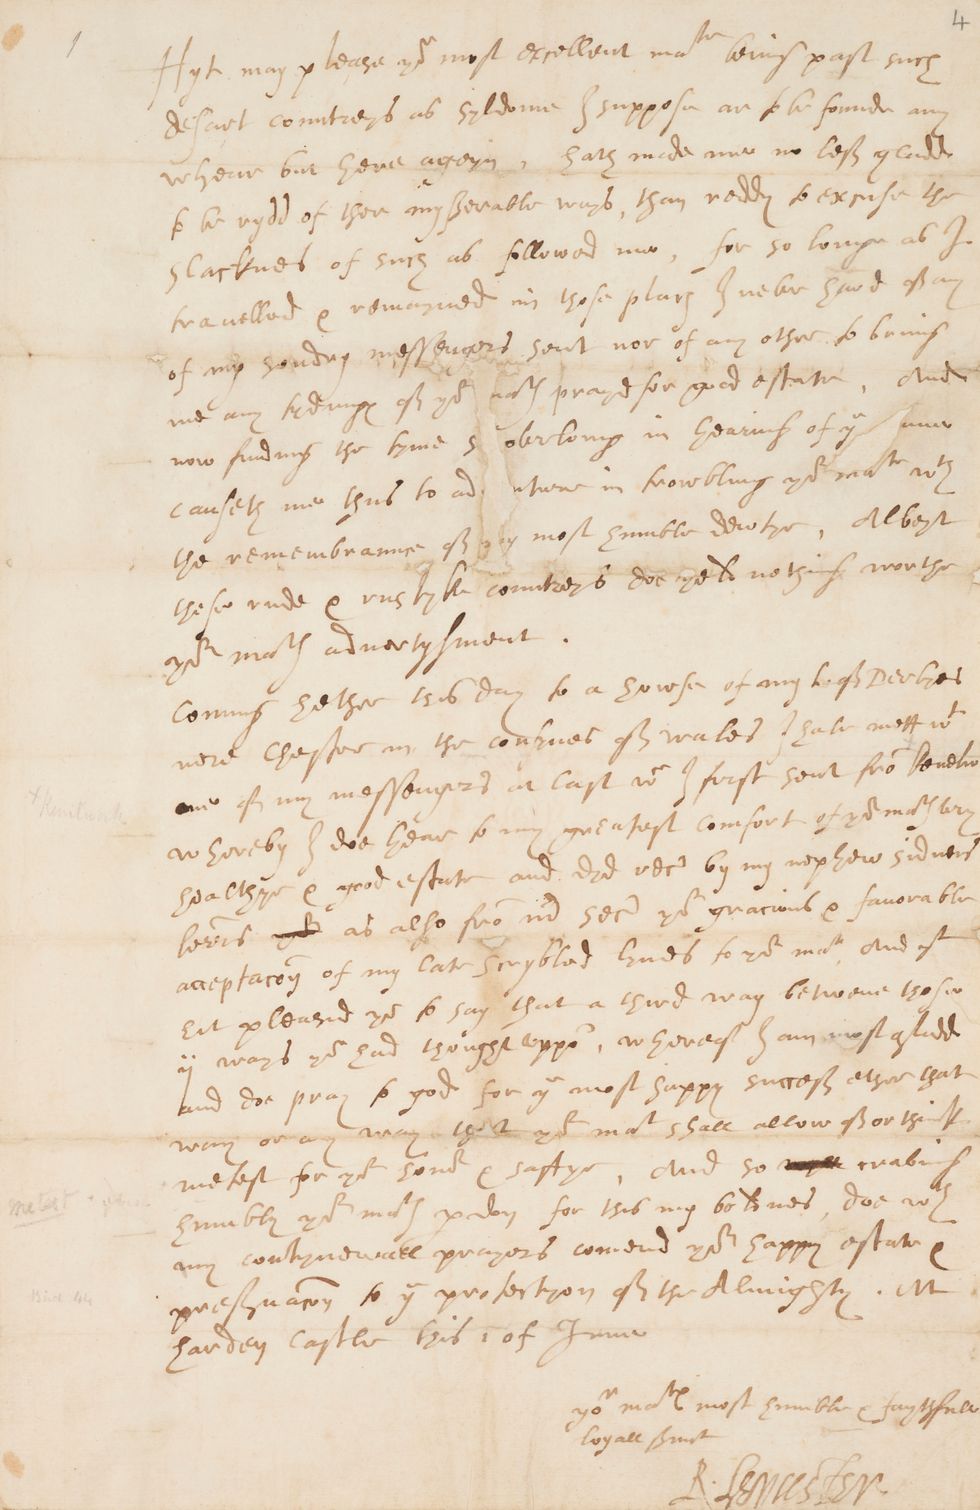 4
Hyt may please yor most excellent matie being past such
desart countreys as syldome I suppose ar to be founde any
whear but here ageyn, hath made me no less gladd
to be rydd of ther myserable ways, than reddy to excuse the
slacknes of such as followed me, for so longe as I
travelled & remayned in those places I never hard of any
of my sondry messengers sent nor of any other to bring
me any tydings of yor mats prayd for good estate, And
now finding the tyme so overlong in hearing of ye same
causeth me thus to ad ture in trowbling yor matie wth
the remembraunce of my most humble dewtye, Albeyt
these rude & ruslyke countreys doe yeld nothing worthe
yor mats advertysment.
Coming hether this day to a howse of my L. of Derbyes
nere Chester in the confynes of Wales I have mett wt
one of my messengers at last wch I first sent fro Kenelw
wherby I doe hear to my greatest comfort of yor mats very
healthye & good estate and dyd rece by my nephew Sidneis
letters as also fro mr Secr yor gracious & favorable
acceptacon of my late scrybled lynes to yor matie, And yt
hit pleased yor to say that a third way betwene those
ij ways yor had thought uppo, wherof I am most gladd
and doe pray to god for ye most happy success ether that
way or any way that yor matie shall allow of or think
metest for yor honor & saftye, And so craving
humbly yor mats pdon for this my boldnes, doe wth
my contynewall prayers comend yor happy estate &
preservacon to ye protectyon of the Almighty. At
harden Castle this 1 of June
yor maties most humble & faythfull
loyall srvnt
R. Leycester
+ Kenilworth
metest